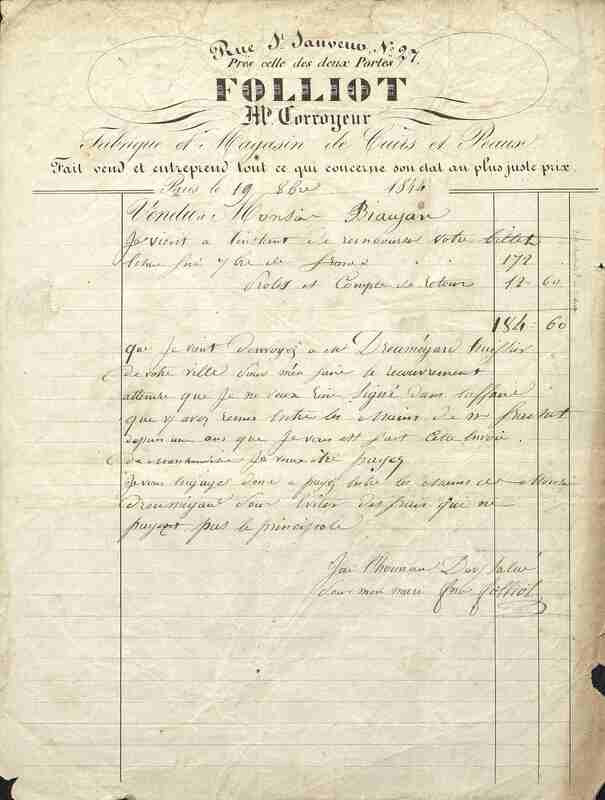 Rue St Sauveur, No. 27.
Près celle des deux Portes
FOLLIOT
Md. Corroyeur
Fabrique et Magasin de Cuirs et Peaux
Fait vend et entreprend tout ce qui concerne son état au plus juste prix.
Paris le 19 8bre 1844
Vendu à Monsieur Biaujan
Je vient a l'instant de rembourser votre billet
172
Protet et Compte de retour 12 60
184 60
que Je vient d'envoyez a Mr Dreuméyan huissier
de votre ville pour m'en faire le recouvrement
attendu que Je ne veux rien signé dans l'affaire
que vs avez remis entre les mains de Mr
depuis un ans que Je vous est fait cette envoie
de marchandise Je veux être payez
Je vous engagez donc a payez entre les mains de
Dreuméyan pour éviter des frais qui ne
payent pas le principale
Jai l'honneur De vs salué
pour mon mari fme folliot